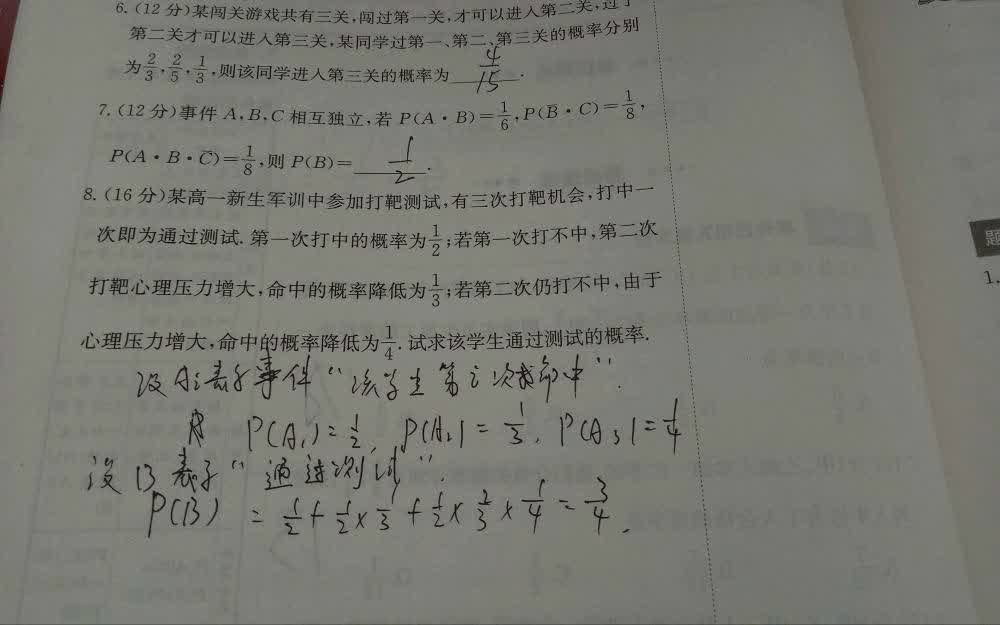 6. (12分)某闯关游戏共有三关,闯过第一关,才可以进入第二关,过了
第二关才可以进入第三关,某同学过第一、第二、第三关的概率分别
为2/3,2/5,1/3,则该同学进入第三关的概率为 4/15 .
7. (12分)事件 A,B,C 相互独立,若 P(A·B)=1/6,P(B̄·C)=1/8,
P(A·B·C̄)=1/8,则 P(B)= 1/2 .
8. (16分)某高一新生军训中参加打靶测试,有三次打靶机会,打中一
次即为通过测试. 第一次打中的概率为1/2;若第一次打不中,第二次
打靶心理压力增大,命中的概率降低为1/3;若第二次仍打不中,由于
心理压力增大,命中的概率降低为1/4. 试求该学生通过测试的概率.
设Ai表示事件“该学生第i次命中”.
P(A₁)=1/2, P(A₂)=1/3, P(A₃)=1/4
设B表示“通过测试”.
P(B) = 1/2 + 1/2 × 1/3 + 1/2 × 2/3 × 1/4 = 3/4.
题
1.